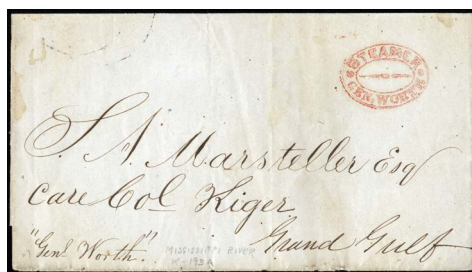 STEAMER
GEN. WORTH
S. A. Marsteller Esq
Care Col Kiger
Grand Gulf
"Genl Worth".
MISSISSIPPI RIVER